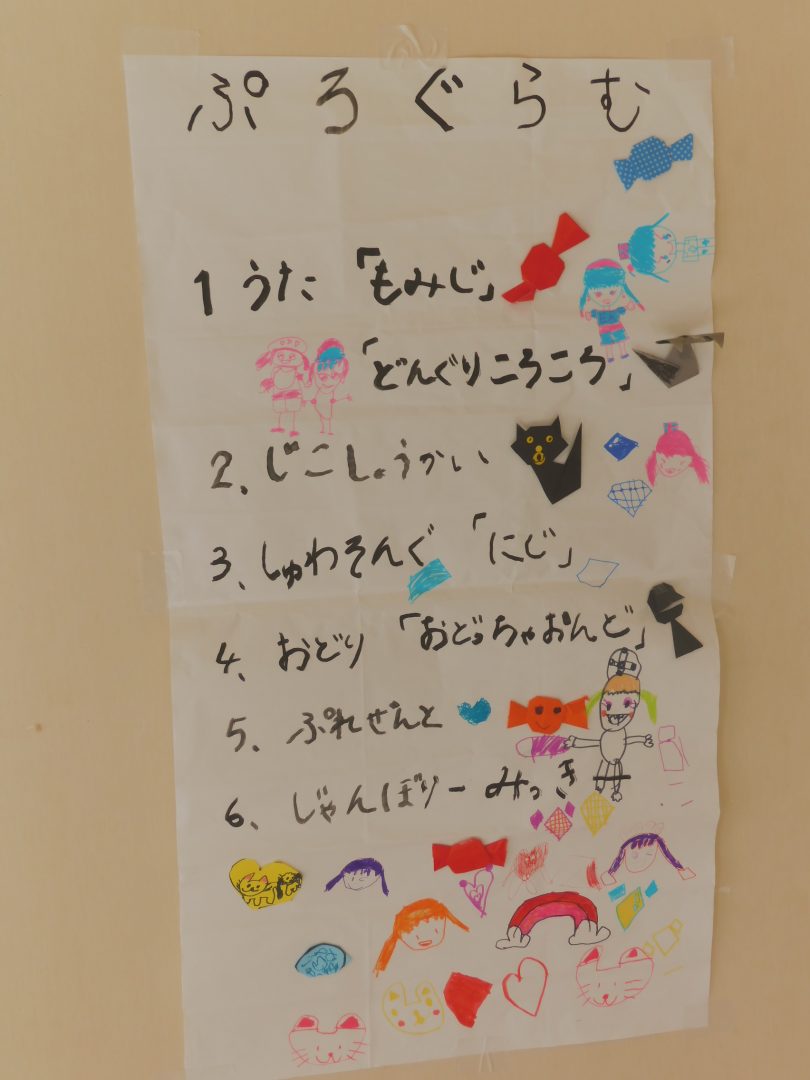 ぷろぐらむ
1 うた 「もみじ」
「どんぐりころころ」
2、じこしょうかい
3、しゅわそんぐ 「にじ」
4、おどり 「おどっちゃおんど」
5、ぷれぜんと
6、じゃんぼりーみっきー